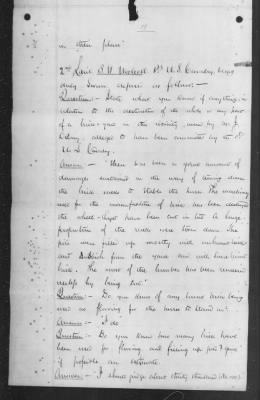 in their place.
2nd Lieut. B. H. 8th U.S. Cavalry, being
duly Sworn, deposed as follows:—
Question:— State what you know if anything in
relation to the destruction of the whole or any part
of a brick-yard in this vicinity, owned by Mr. J.
alleged to have been committed by the 8th
U.S. Cavalry.
Answer:— There has been a great amount of
damages sustained in the way of tearing down
the brick walls to stable the horses. The machinery
used for the manufacture of brick has been destroyed
the wheel-spokes have been cut in two. A large
proportion of the walls were torn down. The
pits were filled up mostly with
and rubbish from the yard and with brick
brick. The most of the lumber has been rendered
useless by being cut.
Question:— Do you know of any bricks being
used as flooring for the horses to stand on?
Answer:— I do
Question:— Do you know how many brick have
been used for flooring and fixing up
if possible an estimate.
Answer:— I should judge about thirty thousand (30.000)